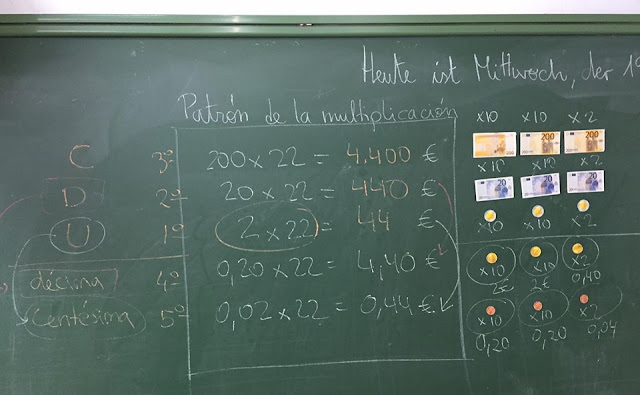 Heute ist Mittwoch, der 19
Patrón de la multiplicación
x10 x10 x2
C 3º 200 x 22 = 4.400 €
200 200
x10 x10 x2
D 2º 20 x 22 = 440 €
20 20 20
U 1º 2 x 22 = 44 €
x10 x10 x2
décima 4º 0,20 x 22 = 4,40 €
x10 x10 x2
2€ 2€ 0,40
Centésima 5º 0,02 x 22 = 0,44 €
x10 x10 x2
0,20 0,20 0,04